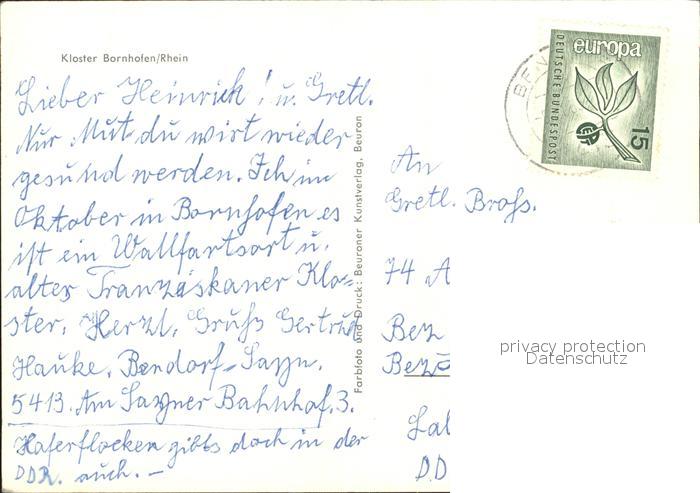 Kloster Bornhofen/Rhein
Lieber Heinrich! u. Gretl.
Nur Mut du wirt wieder
gesund werden. Ich im
Oktober in Bornhofen es
ist ein Wallfartsort u.
altes Franziskaner Klo=
ster. Herzl. Gruß Gertrud
Hauke. Bendorf-Sayn.
5413. Am Sayner Bahnhof. 3.
Haferflocken gibts doch in der
DDR. auch. —
Farbfoto und Druck: Beuroner Kunstverlag, Beuron
europa
DEUTSCHE BUNDESPOST
CEPT
15
An
Gretl. Broß.
74 A
Bez
Bez
DD
privacy protection
Datenschutz